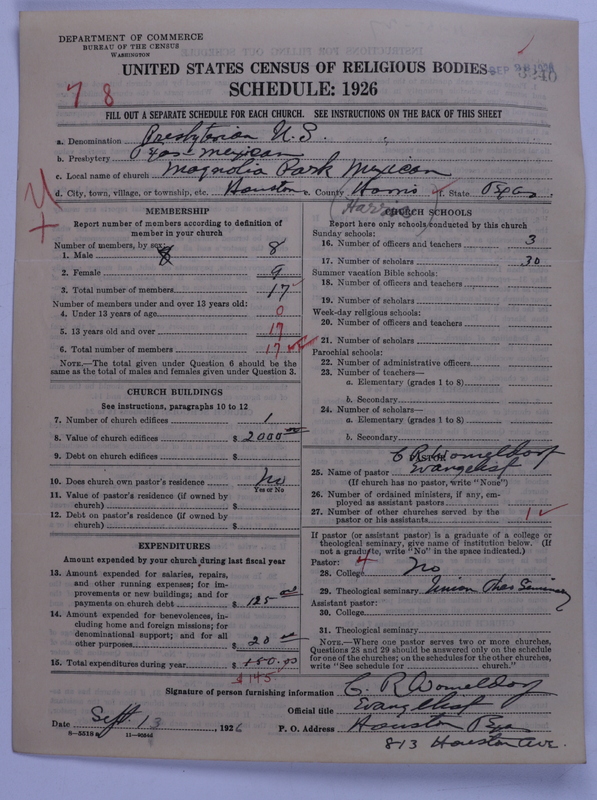 DEPARTMENT OF COMMERCE
BUREAU OF THE CENSUS
WASHINGTON
UNITED STATES CENSUS OF RELIGIOUS BODIES
SCHEDULE: 1926
7 8
FILL OUT A SEPARATE SCHEDULE FOR EACH CHURCH. SEE INSTRUCTIONS ON THE BACK OF THIS SHEET
a. Denomination Presbyterian U.S.
b. Presbytery Texas Mexican
c. Local name of church Magnolia Park Mexican
d. City, town, village, or township, etc. Houston e. County Harris f. State Texas.
(Harris)
MEMBERSHIP
Report number of members according to definition of member in your church
Number of members, by sex:
1. Male 8 8
2. Female 9
3. Total number of members 17
Number of members under and over 13 years old:
4. Under 13 years of age 0
5. 13 years old and over 17
6. Total number of members 17
NOTE.—The total given under Question 6 should be the
same as the total of males and females given under Question 3.
CHURCH BUILDINGS
See instructions, paragraphs 10 to 12
7. Number of church edifices 1
8. Value of church edifices $ 2000
9. Debt on church edifices $
10. Does church own pastor's residence No
Yes or No
11. Value of pastor's residence (if owned by
church) $
12. Debt on pastor's residence (if owned by
church) $
EXPENDITURES
Amount expended by your church during last fiscal year
13. Amount expended for salaries, repairs,
and other running expenses; for im-
provements or new buildings; and for
payments on church debt $ 125
14. Amount expended for benevolences, in-
cluding home and foreign missions; for
denominational support; and for all
other purposes $ 20
15. Total expenditures during year $ 150.00
$145
CHURCH SCHOOLS
Report here only schools conducted by this church
Sunday schools:
16. Number of officers and teachers 3
17. Number of scholars 30
Summer vacation Bible schools:
18. Number of officers and teachers
19. Number of scholars
Week-day religious schools:
20. Number of officers and teachers
21. Number of scholars
Parochial schools:
22. Number of administrative officers
23. Number of teachers—
a. Elementary (grades 1 to 8)
b. Secondary
24. Number of scholars—
a. Elementary (grades 1 to 8)
b. Secondary
PASTOR
C R Womeldorf
25. Name of pastor Evangelist
(If church has no pastor, write "None")
26. Number of ordained ministers, if any, em-
ployed as assistant pastors
27. Number of other churches served by the
pastor or his assistants 1
If pastor (or assistant pastor) is a graduate of a college or
theological seminary, give name of institution below. (If
not a graduate, write "No" in the space indicated.)
Pastor: 4
28. College No
29. Theological seminary Union Theo Seminary
Assistant pastor:
30. College
31. Theological seminary
NOTE.—Where one pastor serves two or more churches,
Questions 28 and 29 should be answered only on the schedule
for one of the churches; on the schedules for the other churches,
write "See schedule for church."
Signature of person furnishing information C. R Womeldorf
Official title Evangelist
Date Sept. 13, 1926 P. O. Address Houston Texas
813 Houston Ave.
8—5518 a 11—9034d